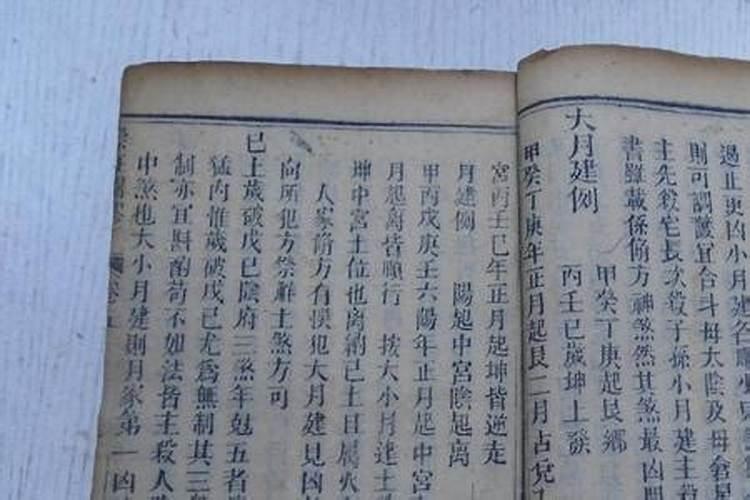 過止更凶小月建
則可調獻宜合斗母太陰及母倉
主先殺宅長次殺子孫小月建主殺
書雖載係偹方神煞然其煞最凶
甲癸丁庚起艮鄉
大月建例 丙壬巳歲坤上發
甲癸丁庚年正月起艮二月占兌
宮丙壬巳年正月起坤皆逆走
月建例 陽起中宮陰起离
甲丙戊庚壬六陽年正月起中宮
月起离皆順行 按大小月建土
坤中宮土位也离納巳土且屬火
人家偹方有悞犯大月建見凶
向所犯方祭解土煞方可
巳上歲破戊巳陰府三煞年尅五者
猛內惟歲破戊巳尤爲無制其三
制亦宜斟酌苟不如法皆主殺人
中煞也大小月建則月家第一凶